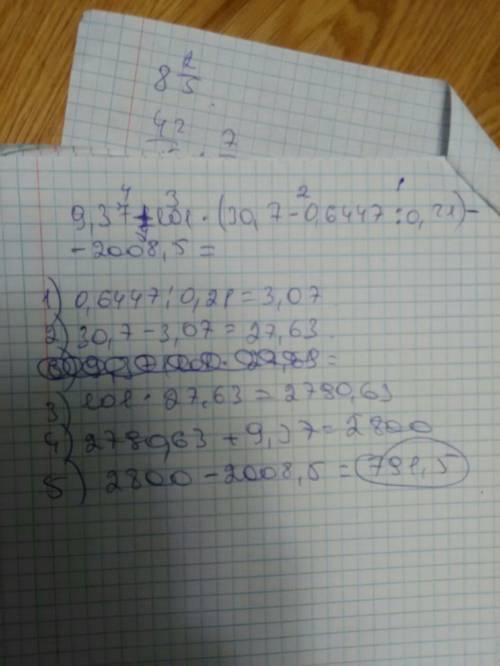 8 2/5
42 7
4 3 2 1
9,37 + 101 · (30,7 - 0,6447 : 0,21) -
- 2008,5 =
1) 0,6447 : 0,21 = 3,07
2) 30,7 - 3,07 = 27,63
3) 101 · 27,63 = 2790,63
4) 2790,63 + 9,37 = 2800
5) 2800 - 2008,5 = 791,5